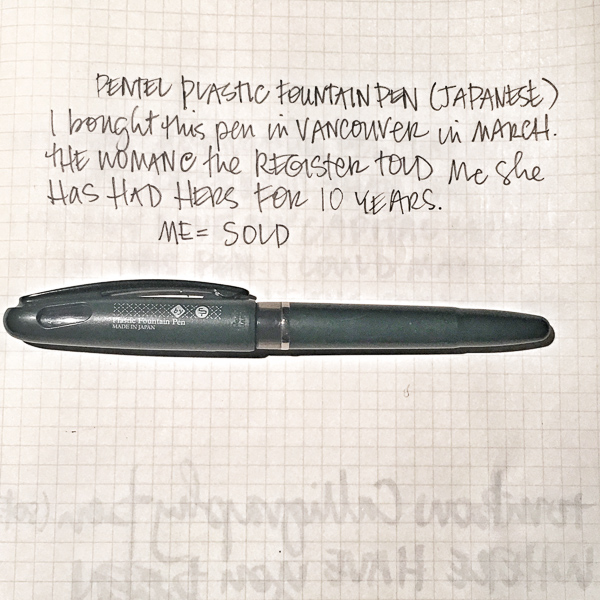 PENTEL PLASTIC FOUNTAIN PEN (JAPANESE)
I bought this pen in VANCOUVER in MARCH.
THE WOMAN @ the REGISTER TOLD Me She
HAS HAD HERS FOR 10 YEARS.
ME = SOLD
Plastic Fountain Pen
MADE IN JAPAN
Tombow Calligraphy Pen
WHERE HAVE YOU BEEN